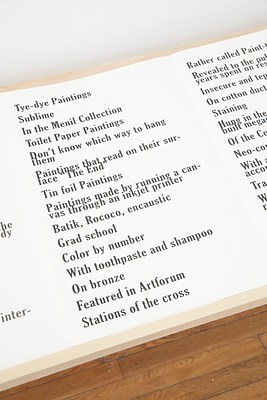 Tye-dye Paintings
Sublime
In the Menil Collection
Toilet Paper Paintings
Don't know which way to hang
them
Paintings that read on their sur-
face "The End"
Tin foil Paintings
Paintings made by running a can-
vas through an inkjet printer
Batik, Rococo, encaustic
Grad school
Color by number
With toothpaste and shampoo
On bronze
Featured in Artforum
Stations of the cross
Rather called Paint-
Revealed to the pu
years spent on res
Insecure and
On cotton duct
Staining
Hung in the
built mega
Of the Ce
Neo-con
With
acco
Tra
W
the
dy
inter-